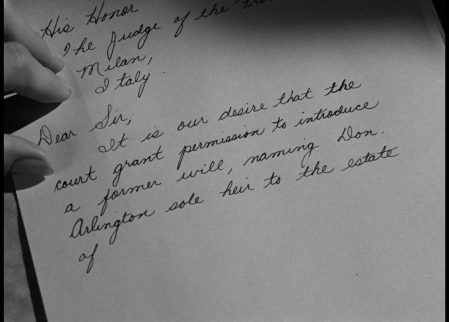 His Honor
The Judge of the
Milan,
Italy.
Dear Sir,
It is our desire that the
court grant permission to introduce
a former will, naming Don.
Arlington sole heir to the estate
of